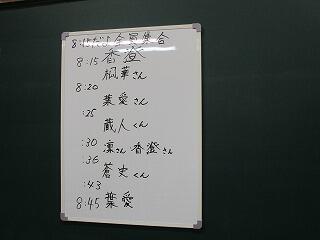 8:15だよ全員集合
8:15 香澄
桐華さん
8:20
葉愛さん
:25
蔵人くん
:30 凜さん 香澄さん
:36
蒼史くん
:43
8:45 葉愛